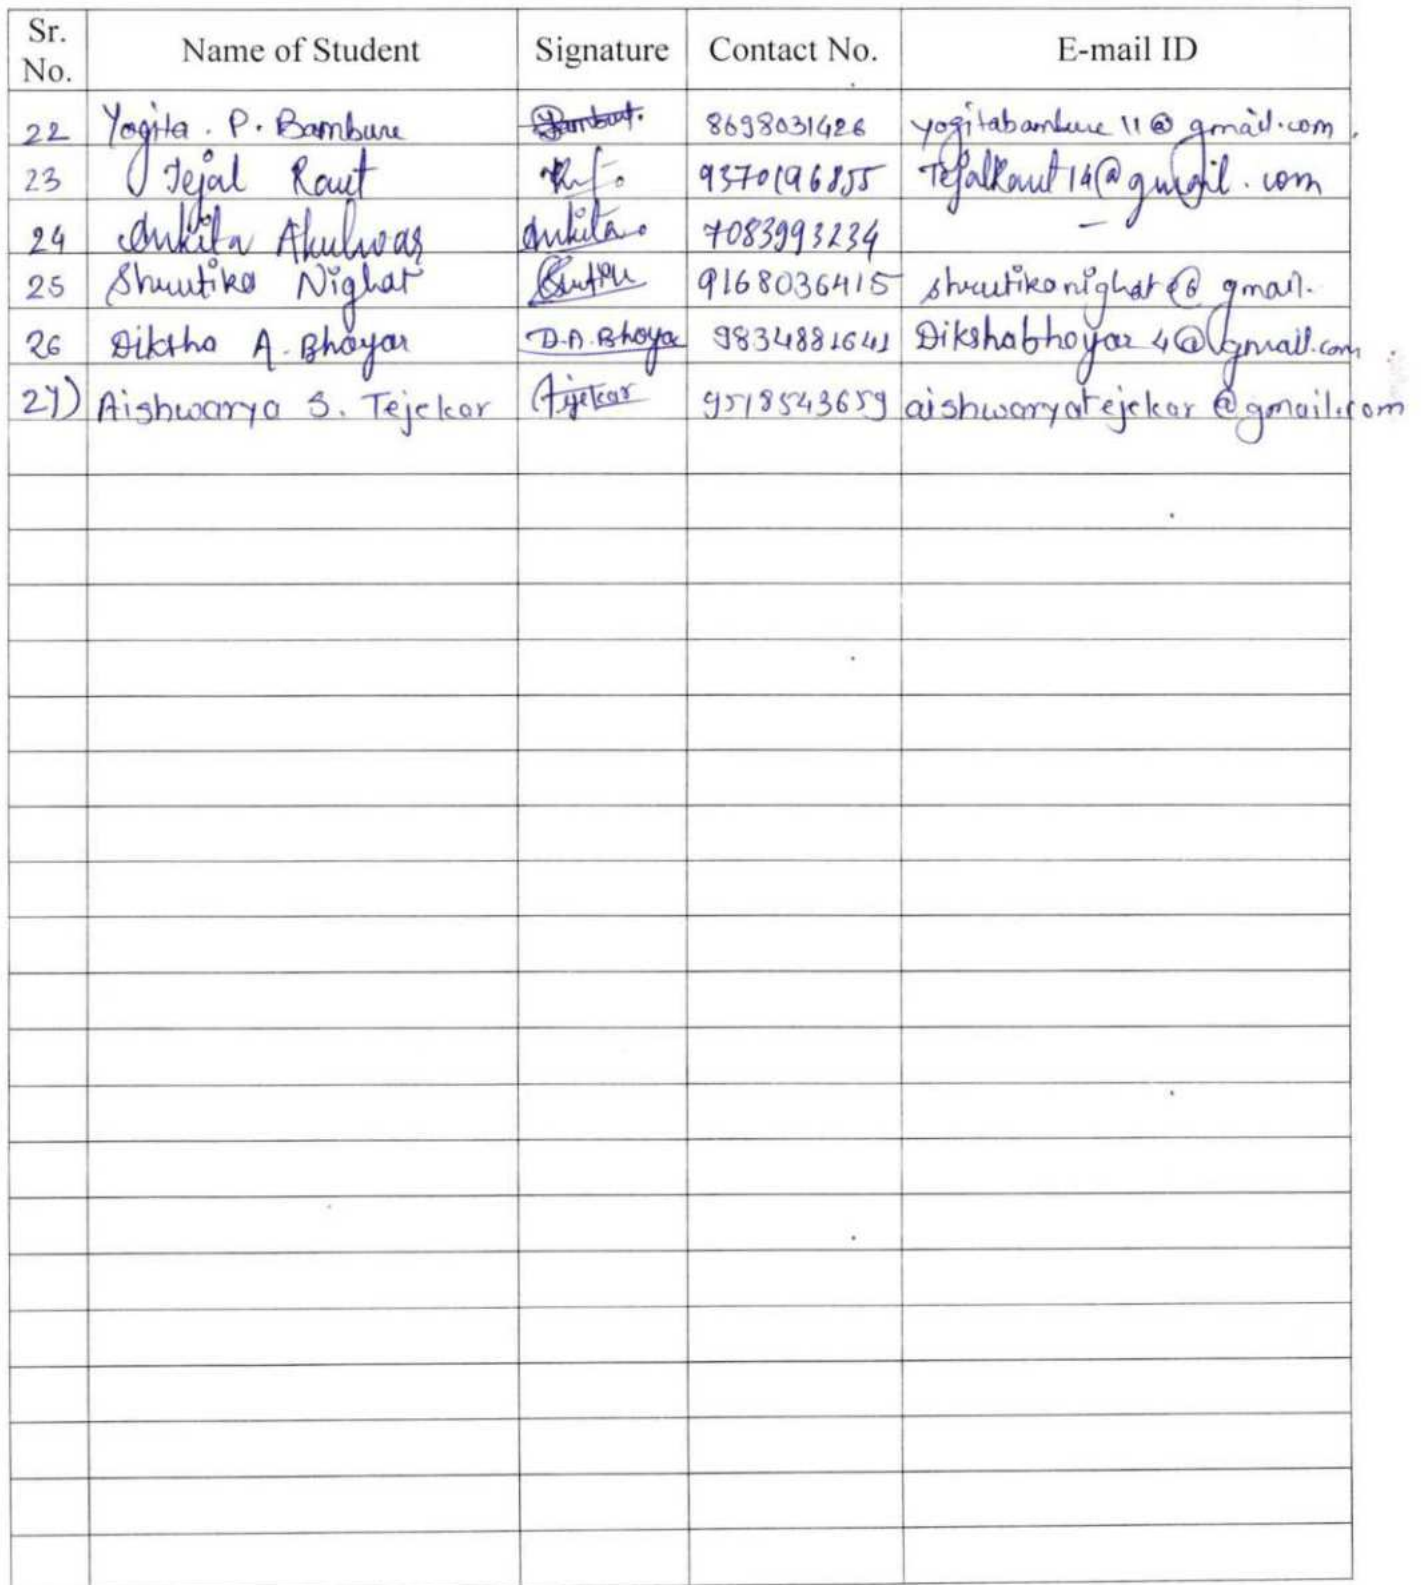 Sr. No. Name of Student Signature Contact No. E-mail ID
22 Yogita . P. Bambure 8698031426 yogitabambure11@gmail.com
23 Tejal Raut 9370196855 TejalRaut14@gmail.com
24 Ankita Akulwar Ankita. 7083993234 –
25 Shrutika Nighat 9168036415 @gmail.
26 Diksha A. Bhoyar D.A.Bhoya 9834881641 Dikshabhoyar4@gmail.com
27) Aishwarya S. Tejekar Tejekar 9518543659 aishwaryatejekar@gmail.com